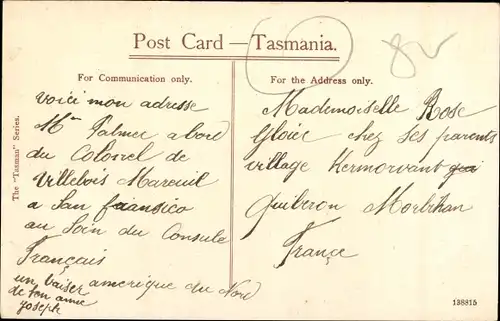 Post Card — Tasmania.
For Communication only.
voici mon adresse
Mr Palmer a bord
du Colosrel de
Villebois Mareuil
a San fransico
au Soin du Consule
Français
amerique du Nord
un baiser
de ton amie
yoseph
For the Address only.
Mademoiselle Rose
Gloiec chez ses parents
village Kermorvant
Quiberon Morbihan
France
The "Tasman" Series.
138815